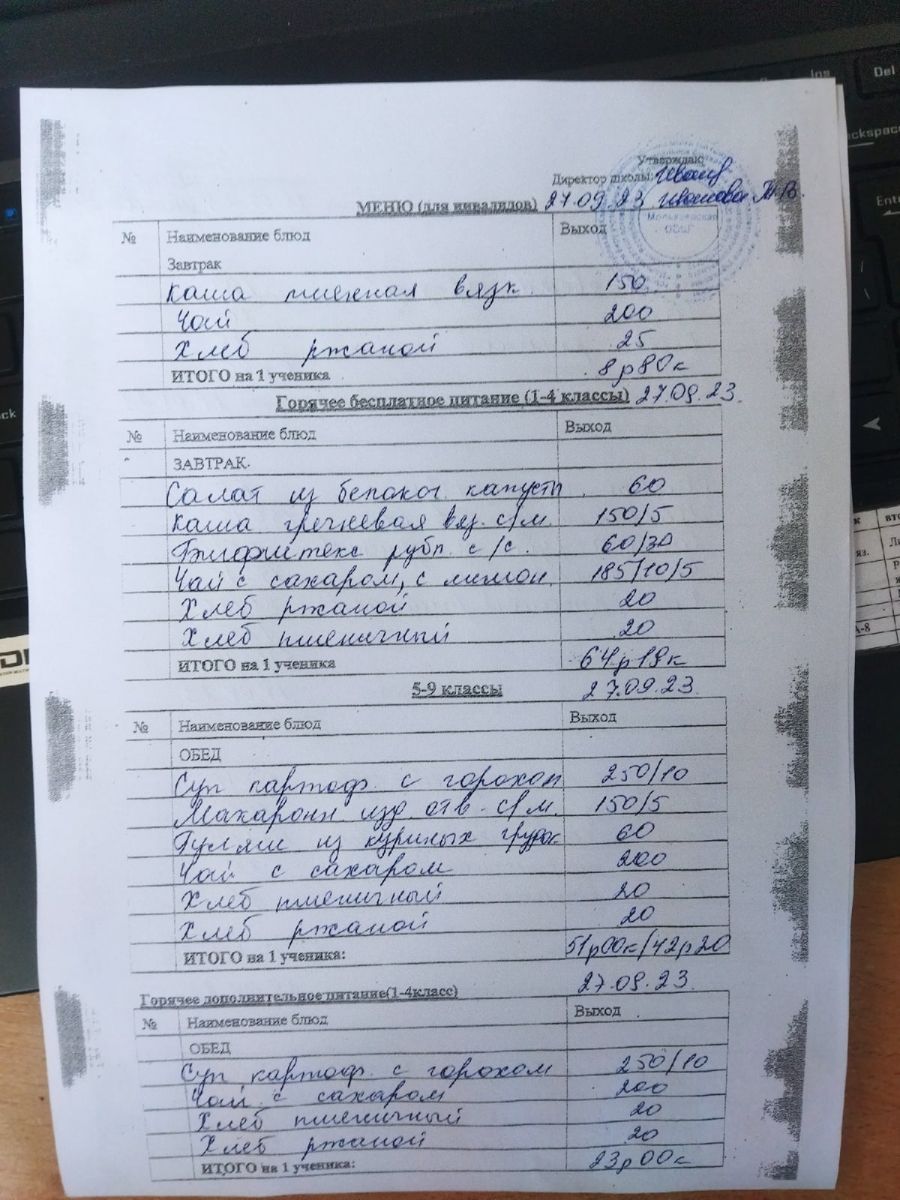 Утверждаю
Директор школы:
МЕНЮ (для инвалидов) 27.09.23 Иванова М.В.
№ Наименование блюд Выход
Завтрак
Каша пшенная вязк. 150
Чай 200
Хлеб ржаной 25
ИТОГО на 1 ученика 8р80к
Горячее бесплатное питание (1-4 классы) 27.09.23.
№ Наименование блюд Выход
ЗАВТРАК.
Салат из белокоч. капусты 60
Каша гречневая вяз. с/м 150/5
Бифштекс рубл. с/с. 60/30
Чай с сахаром, с лимон. 185/10/5
Хлеб ржаной 20
Хлеб пшеничный 20
ИТОГО на 1 ученика 64р19к
5-9 классы 27.09.23.
№ Наименование блюд Выход
ОБЕД
Суп картоф. с горохом 250/10
Макарон изд. отв. с/м. 150/5
Гуляш из куриных грудок 60
Чай с сахаром 200
Хлеб пшеничный 20
Хлеб ржаной 20
ИТОГО на 1 ученика: 51р00к/42р20
27.09.23.
Горячее дополнительное питание(1-4класс)
№ Наименование блюд Выход
ОБЕД
Суп картоф. с горохом 250/10
Чай с сахаром 200
Хлеб пшеничный 20
Хлеб ржаной 20
ИТОГО на 1 ученика: 23р00к
Ins
Del
Backspace
Enter